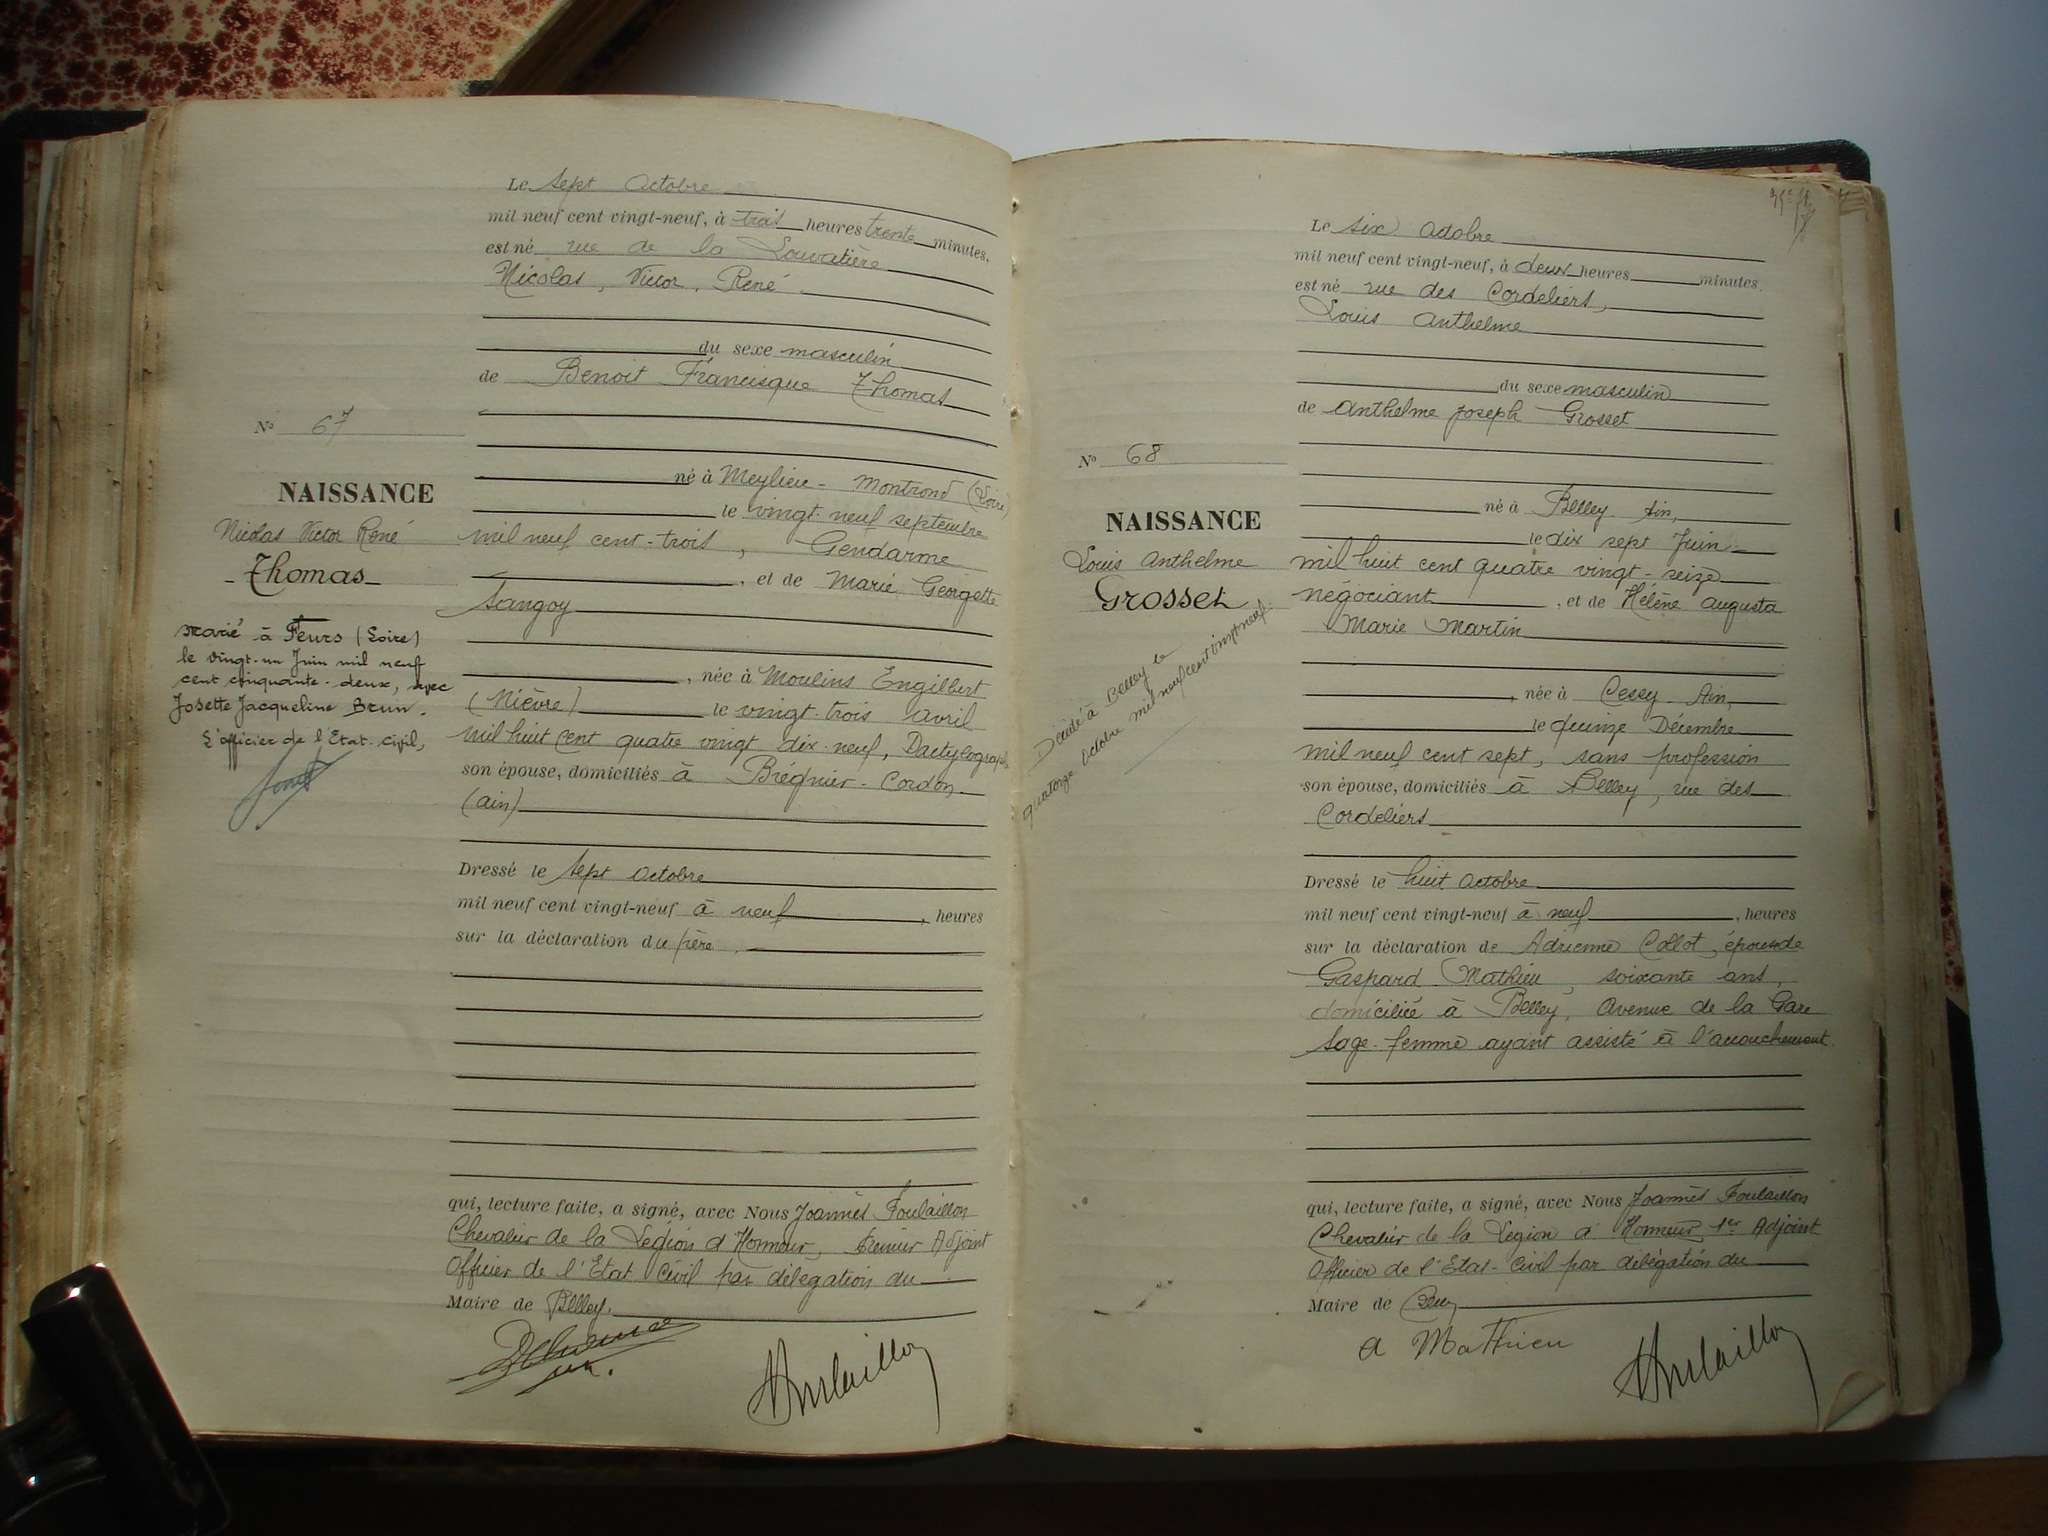 Le sept Octobre
mil neuf cent vingt-neuf, à trois heures trente minutes.
est né rue de la Louvatière
Nicolas, Victor, René
du sexe masculin
de Benoit Francisque Thomas
N° 67
né à Meylieu-Montrond (Loire)
NAISSANCE
le vingt-neuf septembre
Nicolas Victor René
mil neuf cent-trois, Gendarme
-Thomas-
, et de Marie Georgette
Sangoy
marié à Feurs (Loire)
le vingt-un Juin mil neuf
cent cinquante-deux, avec
Josette Jacqueline Brun.
L'officier de l'Etat-civil,
, née à Moulins Engilbert
(Nièvre) le vingt-trois avril
mil huit cent quatre vingt dix-neuf, Dactylographe
son épouse, domiciliés à Brégnier-Cordon
(ain)
Dressé le sept octobre
mil neuf cent vingt-neuf à neuf, heures
sur la déclaration du père.
qui, lecture faite, a signé, avec Nous Joannès Foulaillon
Chevalier de la Légion d'Honneur, Premier Adjoint
Officier de l'Etat Civil par délégation du
Maire de Belley.
Le six octobre
mil neuf cent vingt-neuf, à deux heures minutes.
est né rue des Cordeliers,
Louis Anthelme
du sexe masculin
de Anthelme Joseph Grosset
N° 68
né à Belley Ain,
NAISSANCE
le dix sept Juin
Louis Anthelme
mil huit cent quatre vingt-seize
Grosset
négociant, et de Hélène Augusta
Marie Martin
Décédé à Belley le
quatorze Octobre mil neuf cent vingt neuf.
, née à Cesey Ain,
le quinze Décembre
mil neuf cent sept, sans profession
son épouse, domiciliés à Belley, rue des
Cordeliers
Dressé le huit octobre
mil neuf cent vingt-neuf à neuf, heures
sur la déclaration de Adrienne Collot, épouse de
Gaspard Mathieu, soixante ans,
domiciliée à Belley, Avenue de la Gare
Sage-femme ayant assisté à l'accouchement.
qui, lecture faite, a signé, avec Nous Joannès Foulaillon
Chevalier de la Légion d'Honneur, 1er Adjoint
Officier de l'Etat-Civil par délégation du
Maire de Belley
a Mathieu